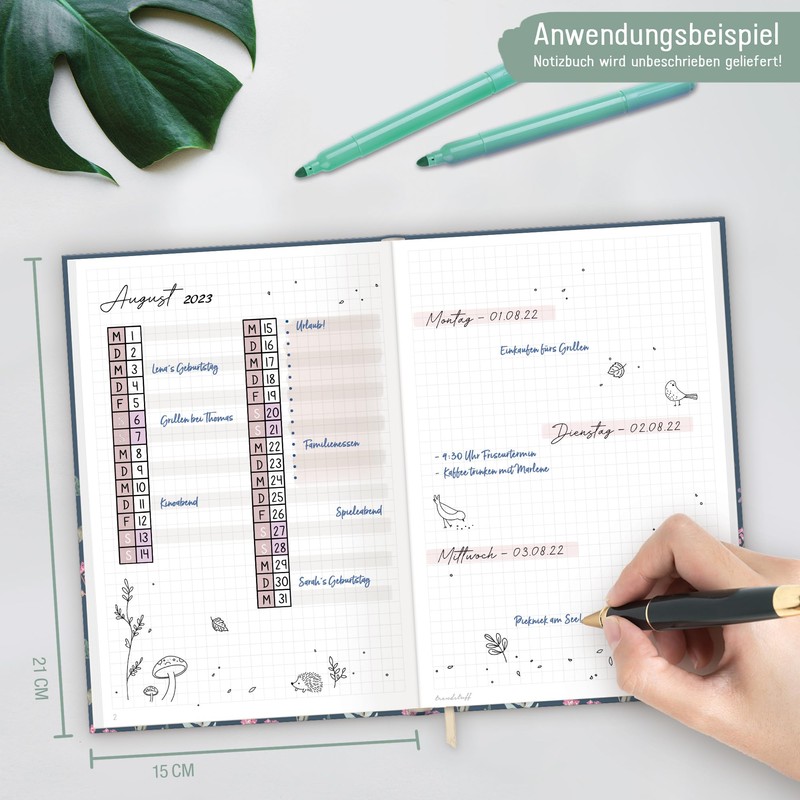 Anwendungsbeispiel
Notizbuch wird unbeschrieben geliefert!
August 2023
M 1
D 2
M 3 Lena's Geburtstag
D 4
F 5
S 6 Grillen bei Thomas
S 7
M 8
D 9
M 10
D 11 Kinoabend
F 12
S 13
S 14
M 15 Urlaub!
D 16
M 17
D 18
F 19
S 20
S 21
M 22 Familienessen
D 23
M 24
D 25
F 26 Spieleabend
S 27
S 28
M 29
D 30 Sarah's Geburtstag
M 31
2
Montag - 01.08.22
Einkaufen fürs Grillen
Dienstag - 02.08.22
- 9:30 Uhr Friseurtermin
- Kaffee trinken mit Marlene
Mittwoch - 03.08.22
Picknick am See!
21 CM
15 CM